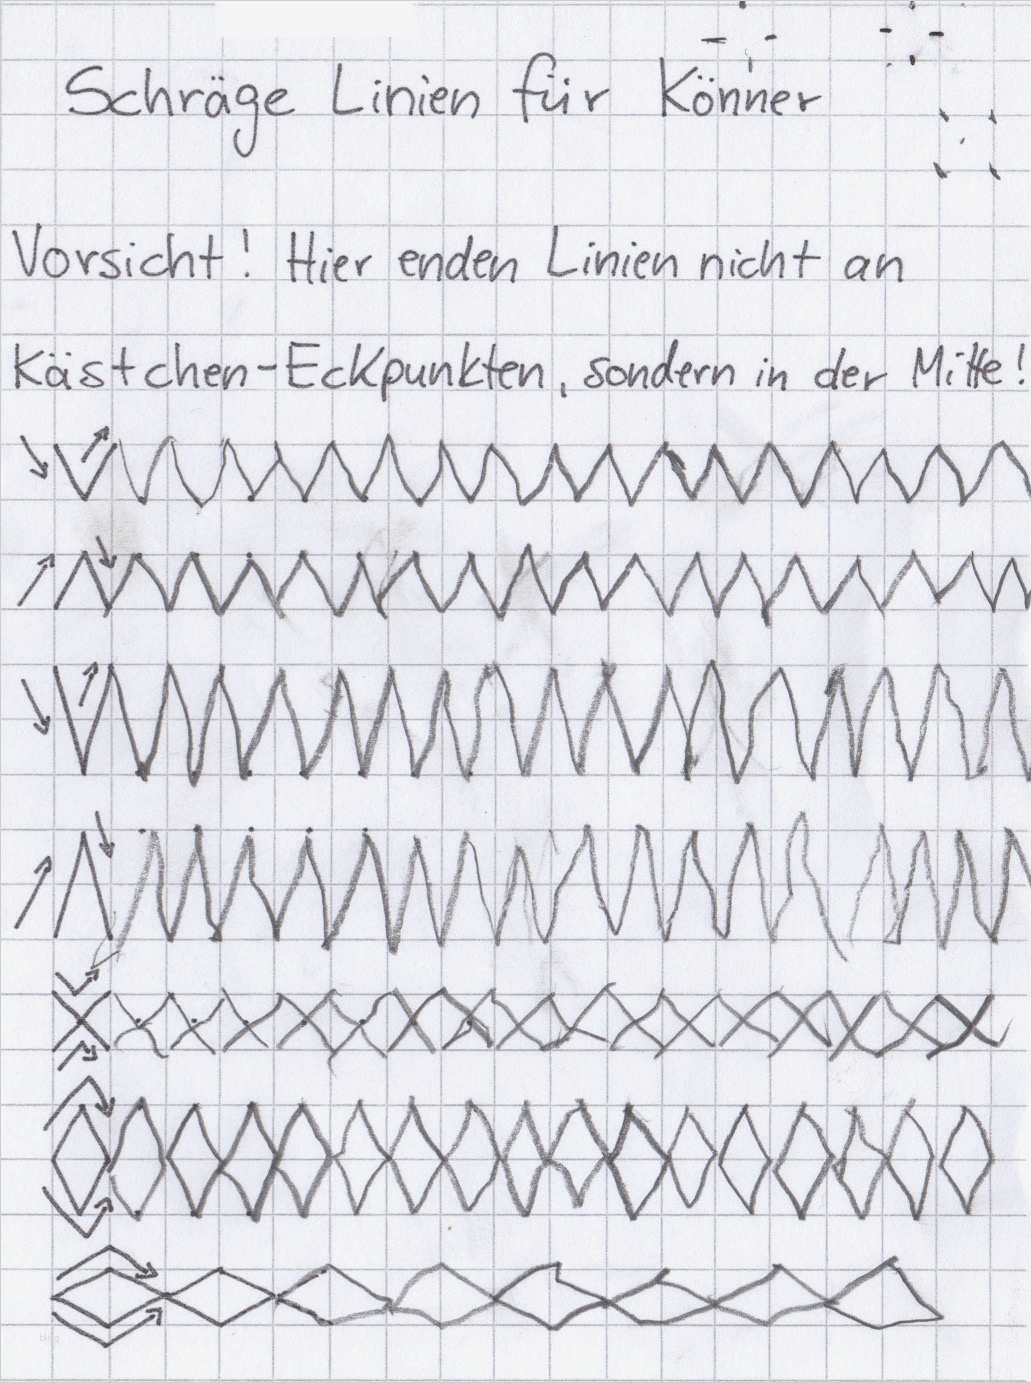 Schräge Linien für Könner
Vorsicht! Hier enden Linien nicht an
Kästchen-Eckpunkten, sondern in der Mitte!